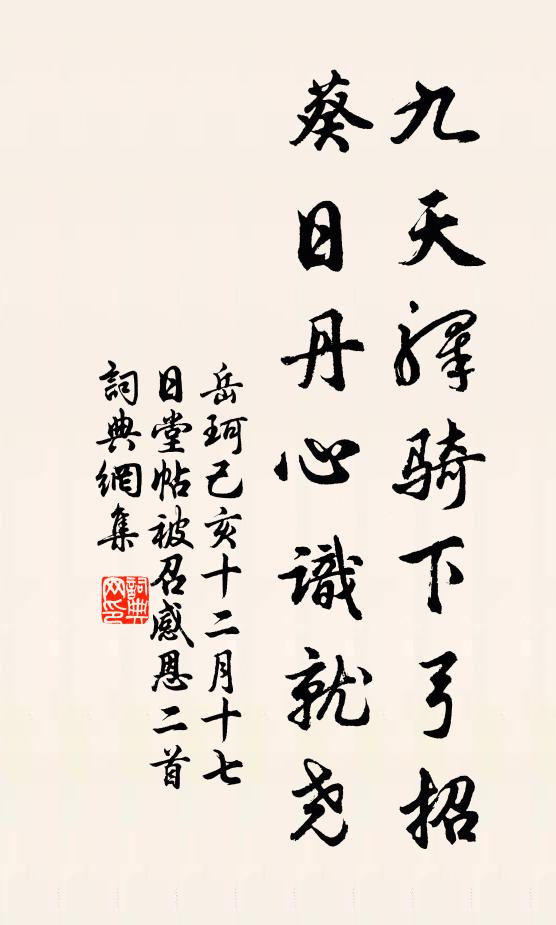 九天驛骑下弓招
葵日丹心識就尧
岳珂己亥十二月十七
日堂帖被召感恩二首
詞典網集
詞典
网印